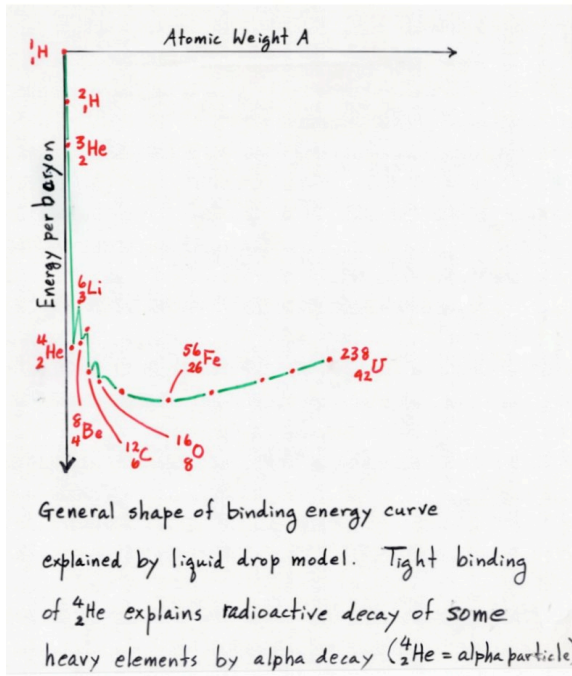 Atomic Weight A
¹₁H
²₁H
³₂He
Energy per baryon
⁶₃Li
⁴₂He
⁵⁶₂₆Fe
²³⁸₄₂U
⁸₄Be
¹²₆C
¹⁶₈O
General shape of binding energy curve
explained by liquid drop model. Tight binding
of ⁴₂He explains radioactive decay of some
heavy elements by alpha decay (⁴₂He = alpha particle)